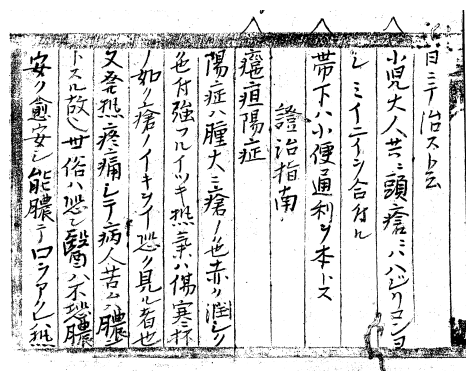 日ニテ治スト云
小児大人共ニ頭瘡ニハハジリコンヨ
シミイニイシ合付ル
帯下ハ小便通利ヲ本トス
證治指南
癰疽陽症
陽症ハ腫大ニ瘡ノ色赤ク潤シク
色付強フルイツキ熱氣ハ傷寒杯
ノ如ク瘡ノイキヲイ恐ク見ル者也
又発熱疼痛シテ病人苦ムハ膿ン
トスル故也世俗ハ恐シ醫ハ不恐膿
安ク愈安シ能膿テ口ヲアケ熱